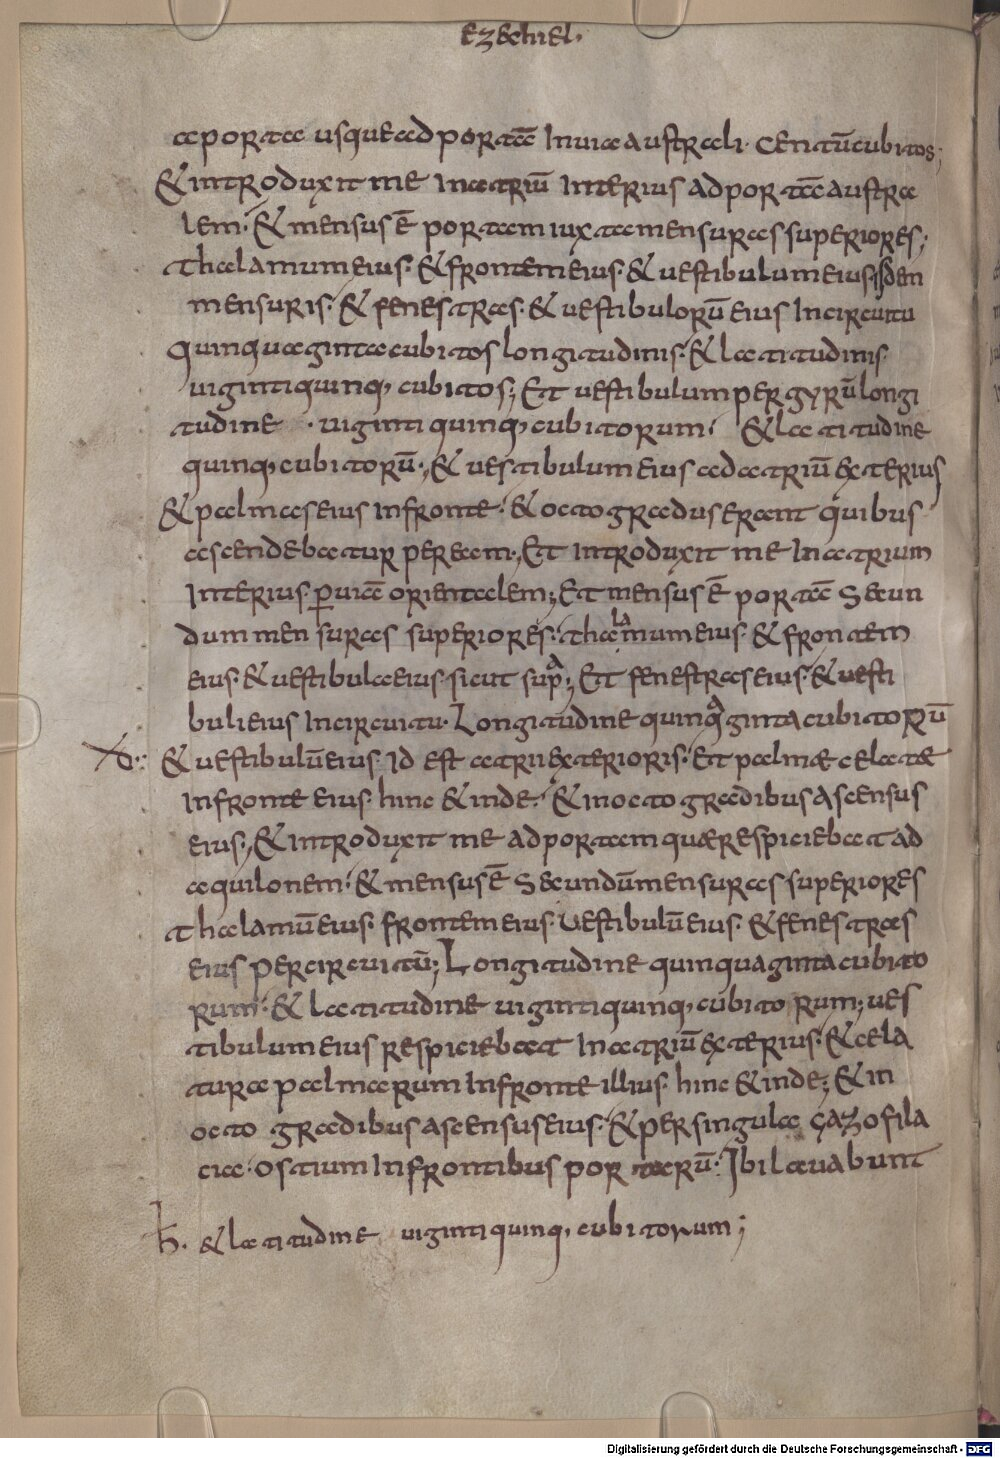 EZECHIEL·
a porta usque ad portā In uia australi· Centū cubitos;
& introduxit me In atriū Interius ad portā austra
lem· & mensus ē portam iuxta mensuras superiores;
thalamum eius· & frontem eius· & uestibulum eius isdem
mensuris· & fenestras· & uestibulorū eius In circuitu
quinquaginta cubitos longitudinis· & latitudinis
uiginti quinq, cubitos; Et uestibulum per gyrū longi
tudine · uiginti quinq, cubitorum· & latitudine
quinq, cubitorū·, & uestibulum eius ad atriū exterius
& palmas eius In fronte· & octo gradus erant quibus
ascendebatur per eam·, Et Introduxit me In atrium
Interius· p uiā orientalem; Et mensus ē portā Secun
dum mensuras superiores· thalamum eius· & frontem
eius· & uestibula eius· sicut supᵃ; Et fenestras eius· & uesti
buli eius In circuitu· Longitudine quinqᵃginta cubitorū
& uestibulū eius· Id est atrii exterioris· Et palmæ celatæ
In fronte eius· hinc & inde· & in octo gradibus Ascensus
eius·, & introduxit me ad portam quæ respiciebat ad
aquilonem· & mensus ē Secundū mensuras superiores
thalamū eius· frontem eius· Uestibulū eius· & fenestras
eius per circuitū; Longitudine quinquaginta cubito
rum· & latitudine uiginti quinq, cubitorum; ues
tibulum eius respiciebat In atriū exterius· & cela
tura palmarum In fronte illius· hinc & inde; & in
octo gradibus ascensus eius· & per singula gazofila
cia· ostium In frontibus portarū· Ibi lauabunt
h· & latitudine uiginti quinq, cubitorum;
Digitalisierung gefördert durch die Deutsche Forschungsgemeinschaft - DFG